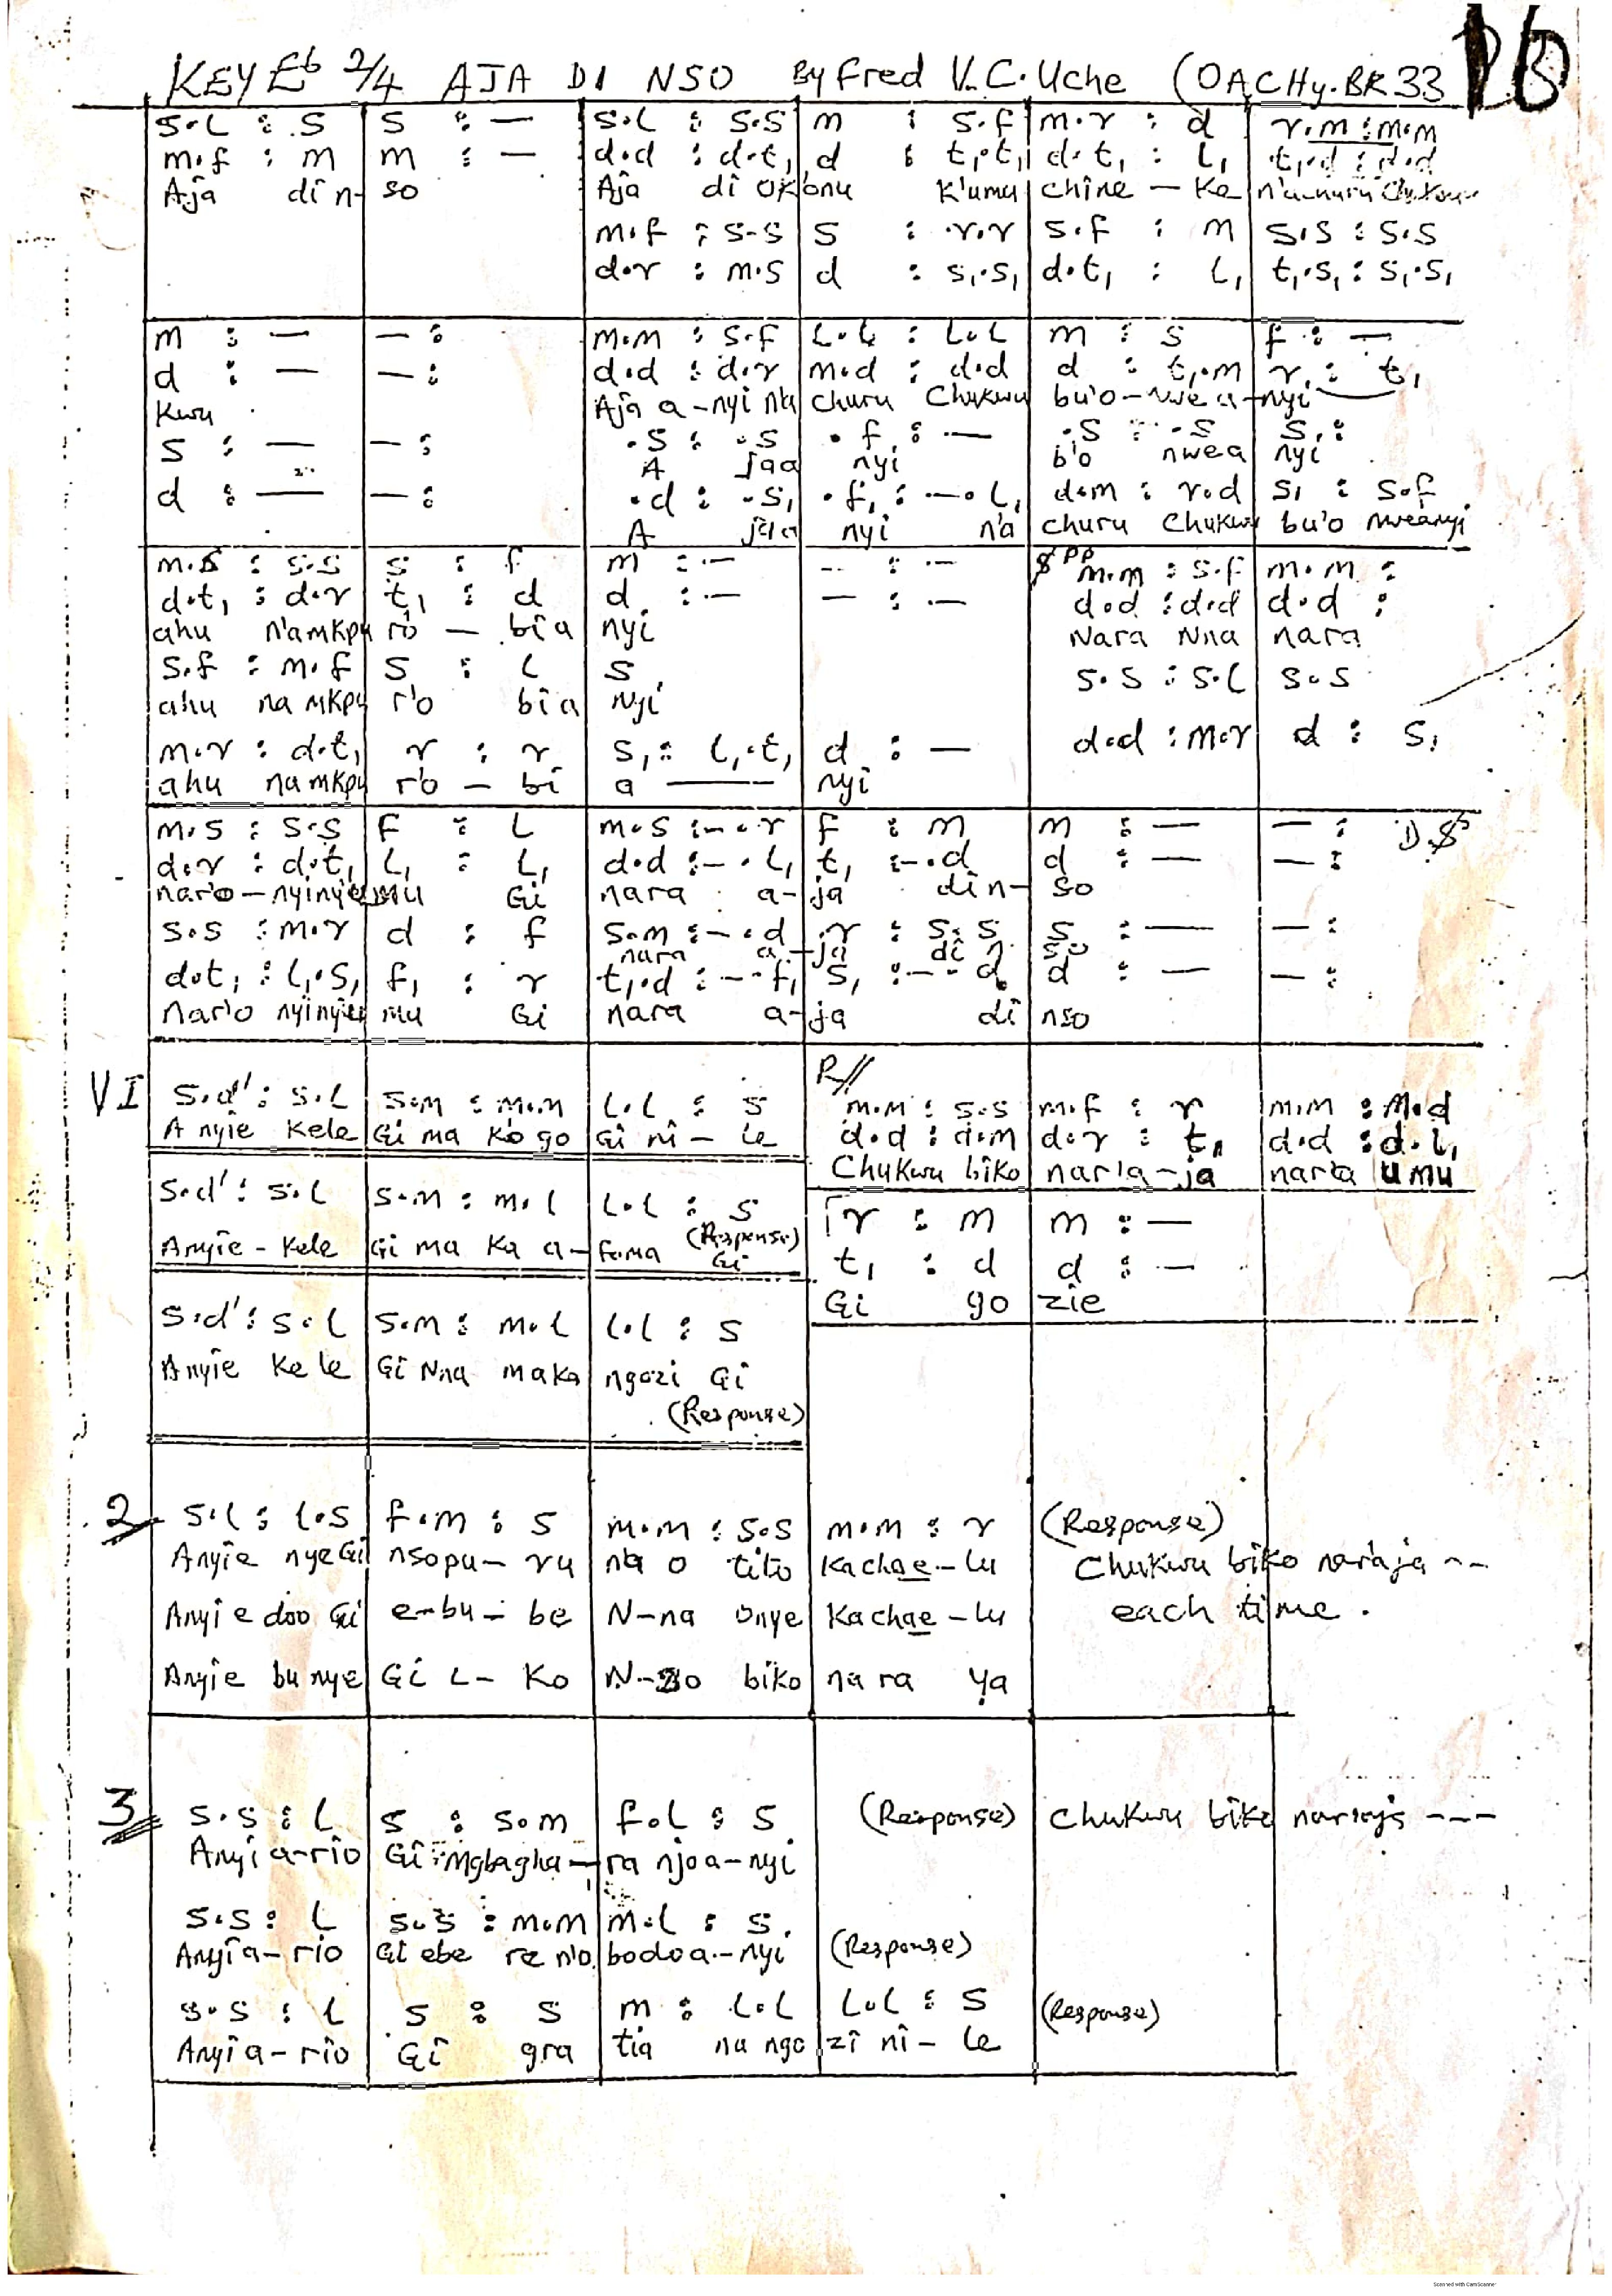 KEY Eb 2/4 AJA DI NSO By Fred V.C. Uche (OACHy.BR 33
s.l : .s | s : — | s.l : s.s | m : s.f | m.r : d | r.m : m.m
m.f : m | m : — | d.d : d.t, | d : t,.t, | d.t, : l, | t,.d : d.d
Aja dî n- | so | Aja dî ok'onu | k'umu | chîne — ke | n'achuru Chukwu
m.f : s.s | s : .r.r | s.f : m | s.s : s.s
d.r : m.s | d : s,.s, | d.t, : l, | t,.s, : s,.s,
m : — | — : | m.m : s.f | l.l : l.l | m : s | f : —
d : — | — : | d.d : d.r | m.d : d.d | d : t,.m | r : t,
kwu | Aja a-nyi n'a | churu Chukwu | bu'o-nwe a- | nyi
s : — | — : | .s : .s | .f : — | .s : .s | s, :
A jaa | nyi | b'o nwea | nyi
d : — | — : | .d : .s, | .f, : —.l, | d.m : r.d | s, : s.f
A jaa | nyi n'a | churu Chukwu | bu'o nweanyi
m.s : s.s | s : f | m : — | — : — | $ pp m.m : s.f | m.m :
d.t, : d.r | t, : d | d : — | — : — | d.d : d.d | d.d :
ahu n'amkpu | r'o — bîa | nyi | Nara Nna | nara
s.f : m.f | s : l | s | s.s : s.l | s.s
ahu na mkpu | r'o bîa | nyi
m.r : d.t, | r : r | s, : l,.t, | d : — | d.d : m.r | d : s,
ahu namkpu | r'o — bî | a — | nyi
m.s : s.s | f : l | m.s : —.r | f : m | m : — | — : D.$
d.r : d.t, | l, : l, | d.d : —.l, | t, : —.d | d : — | — :
nar'o-nyinye | mu Gi | nara a- | ja dî n- | so
s.s : m.r | d : f | s.m : —.d | r : s.s | s : — | — :
nara a- | ja dî n | so
d.t, : l,.s, | f, : r | t,.d : —.f, | s, : —.d | d : — | — :
nar'o nyinye | mu Gi | nara a- | ja dî | nso
VI s.d' : s.l | s.m : m.m | l.l : s
Anyîe kele | Gi ma ko go | Gi nî - le
R//
m.m : s.s | m.f : r | m.m : m.d
d.d : d.m | d.r : t, | d.d : d.l,
Chukwu bîko | nar'a-ja | nar'a umu
s.d' : s.l | s.m : m.l | l.l : s
(Response)
Anyîe - kele | Gi ma ka a- | fama Gi
r : m | m : —
t, : d | d : —
Gi go | zîe
s.d' : s.l | s.m : m.l | l.l : s
Anyîe kele | Gî Nna maka | ngozi Gî
(Response)
2 s.l : l.s | f.m : s | m.m : s.s | m.m : r | (Response)
Anyîe nye Gi | nsopu - ru | n'a o tito | kachae - lu | Chukwu bîko nar'aja --
Anyi e doo Gi | e-bu - be | N-na onye | kachae - lu | each time.
Anyîe bu nye | Gi i - ko | N-so biko | na ra ya
3 s.s : l | s : s.m | f.l : s | (Response) | Chukwu bîko nar'aja ---
Anyî a-rîo | Gî Mgbagha- | ra njo a-nyi
s.s : l | s.s : m.m | m.l : s
Anyîa - rîo | Gi ebe re n'o | bodo a - nyi | (Response)
s.s : l | s : s | m : l.l | l.l : s | (Response)
Anyî a - rîo | Gî gra | tia na ngo | zî nî - le
Scanned with CamScanner